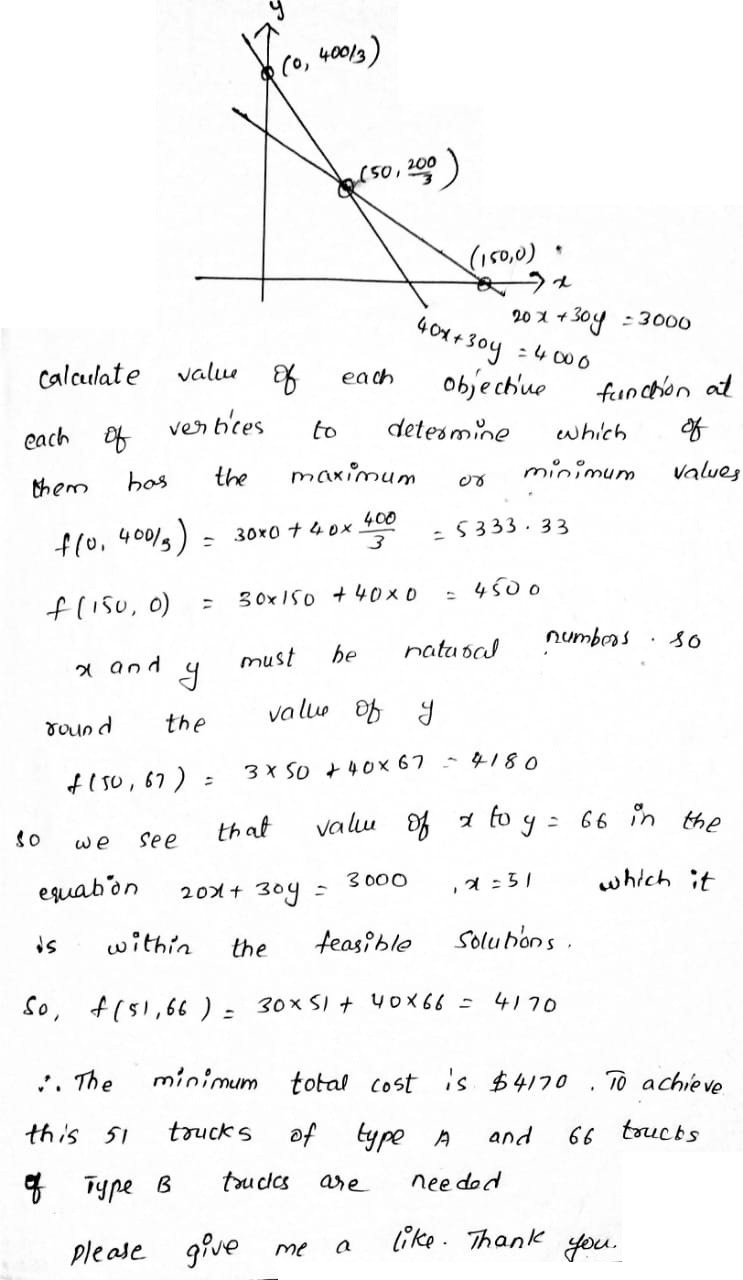 y
(0, 400/3)
(50, 200/3)
(150,0)
x
20x + 30y = 3000
40x + 30y = 4000
calculate value of each objective function at
each of vertices to determine which of
them has the maximum or minimum values
f(0, 400/3) = 30x0 + 40x 400/3 = 5333.33
f(150, 0) = 30x150 + 40x0 = 4500
x and y must be natural numbers. so
round the value of y
f(50, 67) = 3x50 + 40x67 = 4180
so we see that value of x to y = 66 in the
equation 20x + 30y = 3000 , x = 51 which it
is within the feasible solutions.
So, f(51,66) = 30x51 + 40x66 = 4170
∴ The minimum total cost is $4170 . To achieve
this 51 trucks of type A and 66 trucks
of Type B trucks are needed
please give me a like. Thank you.